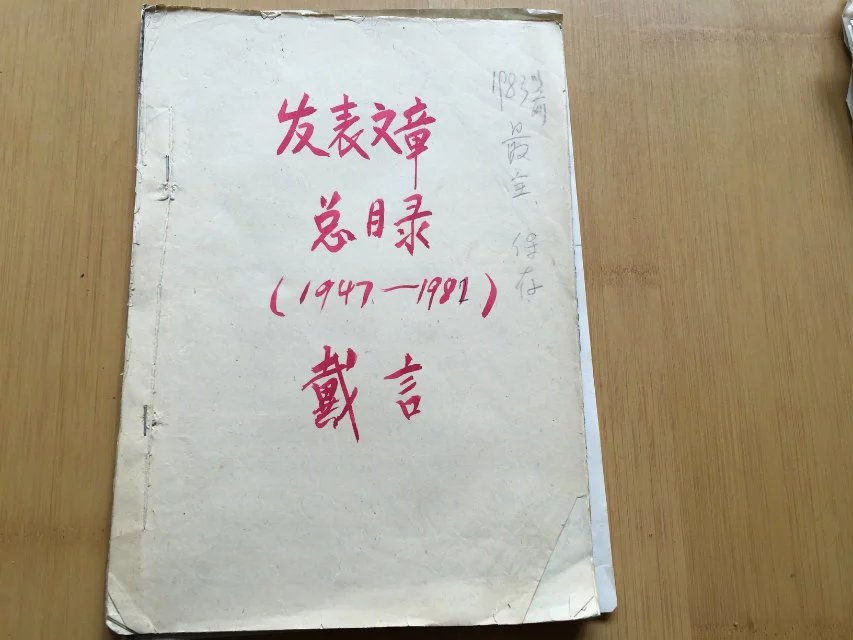 发表文章
总目录
（1947—1981）
戴言
1983以前
最全、保存